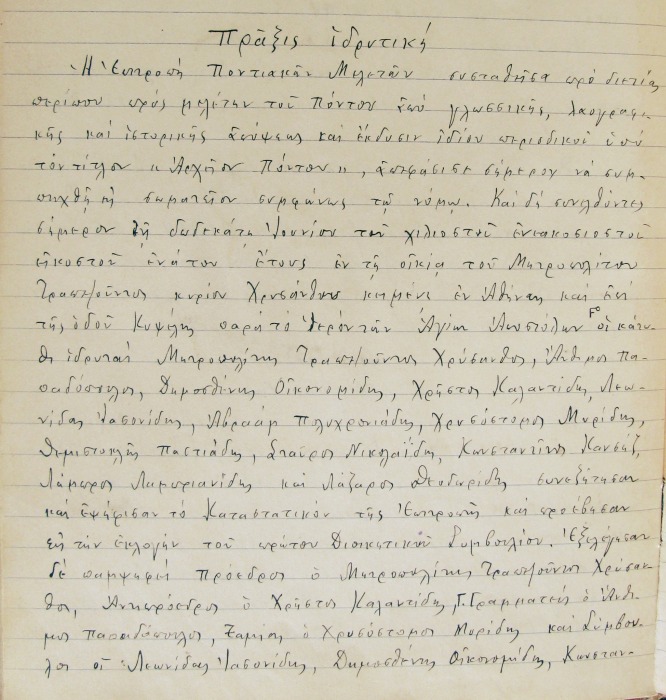 Πρᾶξις ἱδρυτική
Ἡ Ἐπιτροπή Ποντιακῶν Μελετῶν συσταθεῖσα πρό διετίας
περίπου πρός μελέτην τοῦ Πόντου ἀπό γλωσσικῆς, λαογραφι-
κῆς καί ἱστορικῆς ἀπόψεως καί ἔκδοσιν ἰδίου περιοδικοῦ ὑπό
τόν τίτλον «Ἀρχεῖον Πόντου», ἀπεφάσισε σήμερον νά συμ-
πηχθῇ εἰς σωματεῖον συμφώνως τῷ νόμῳ. Καί δή συνελθόντες
σήμερον τῇ δωδεκάτῃ Ἰουνίου τοῦ χιλιοστοῦ ἐννακοσιοστοῦ
εἰκοστοῦ ἐνάτου ἔτους ἐν τῇ οἰκίᾳ τοῦ Μητροπολίτου
Τραπεζοῦντος κυρίου Χρυσάνθου κειμένῃ ἐν Ἀθήναις καί ἐπί
τῆς ὁδοῦ Κυψέλης παρά τό Ἱερόν τῶν Ἁγίων Ἀποστόλων οἱ κάτω-
θι ἱδρυταί Μητροπολίτης Τραπεζοῦντος Χρύσανθος, Ἄνθιμος Πα-
παδόπουλος, Δημοσθένης Οἰκονομίδης, Χρῆστος Καλαντίδης, Λεω-
νίδας Ἰασονίδης, Ἀβραάμ Πολυχρονιάδης, Χρυσόστομος Μυρίδης,
Θεμιστοκλῆς Παστιάδης, Σταῦρος Νικολαΐδης, Κωνσταντῖνος
Λάμπρος Λαμπριανίδης καί Λάζαρος Θεοδωρίδης συνεζήτησαν
καί ἐψήφισαν τό Καταστατικόν τῆς Ἐπιτροπῆς καί προέβησαν
εἰς τήν ἐκλογήν τοῦ πρώτου Διοικητικοῦ Συμβουλίου. Ἐξελέγησαν
δέ παμψηφεί Πρόεδρος ὁ Μητροπολίτης Τραπεζοῦντος Χρύσαν-
θος, Ἀντιπρόεδρος ὁ Χρῆστος Καλαντίδης, Γ. Γραμματεύς ὁ Ἄνθι-
μος Παπαδόπουλος, Ταμίας ὁ Χρυσόστομος Μυρίδης καί Σύμβου-
λοι οἱ Λεωνίδας Ἰασονίδης, Δημοσθένης Οἰκονομίδης, Κωνσταν-